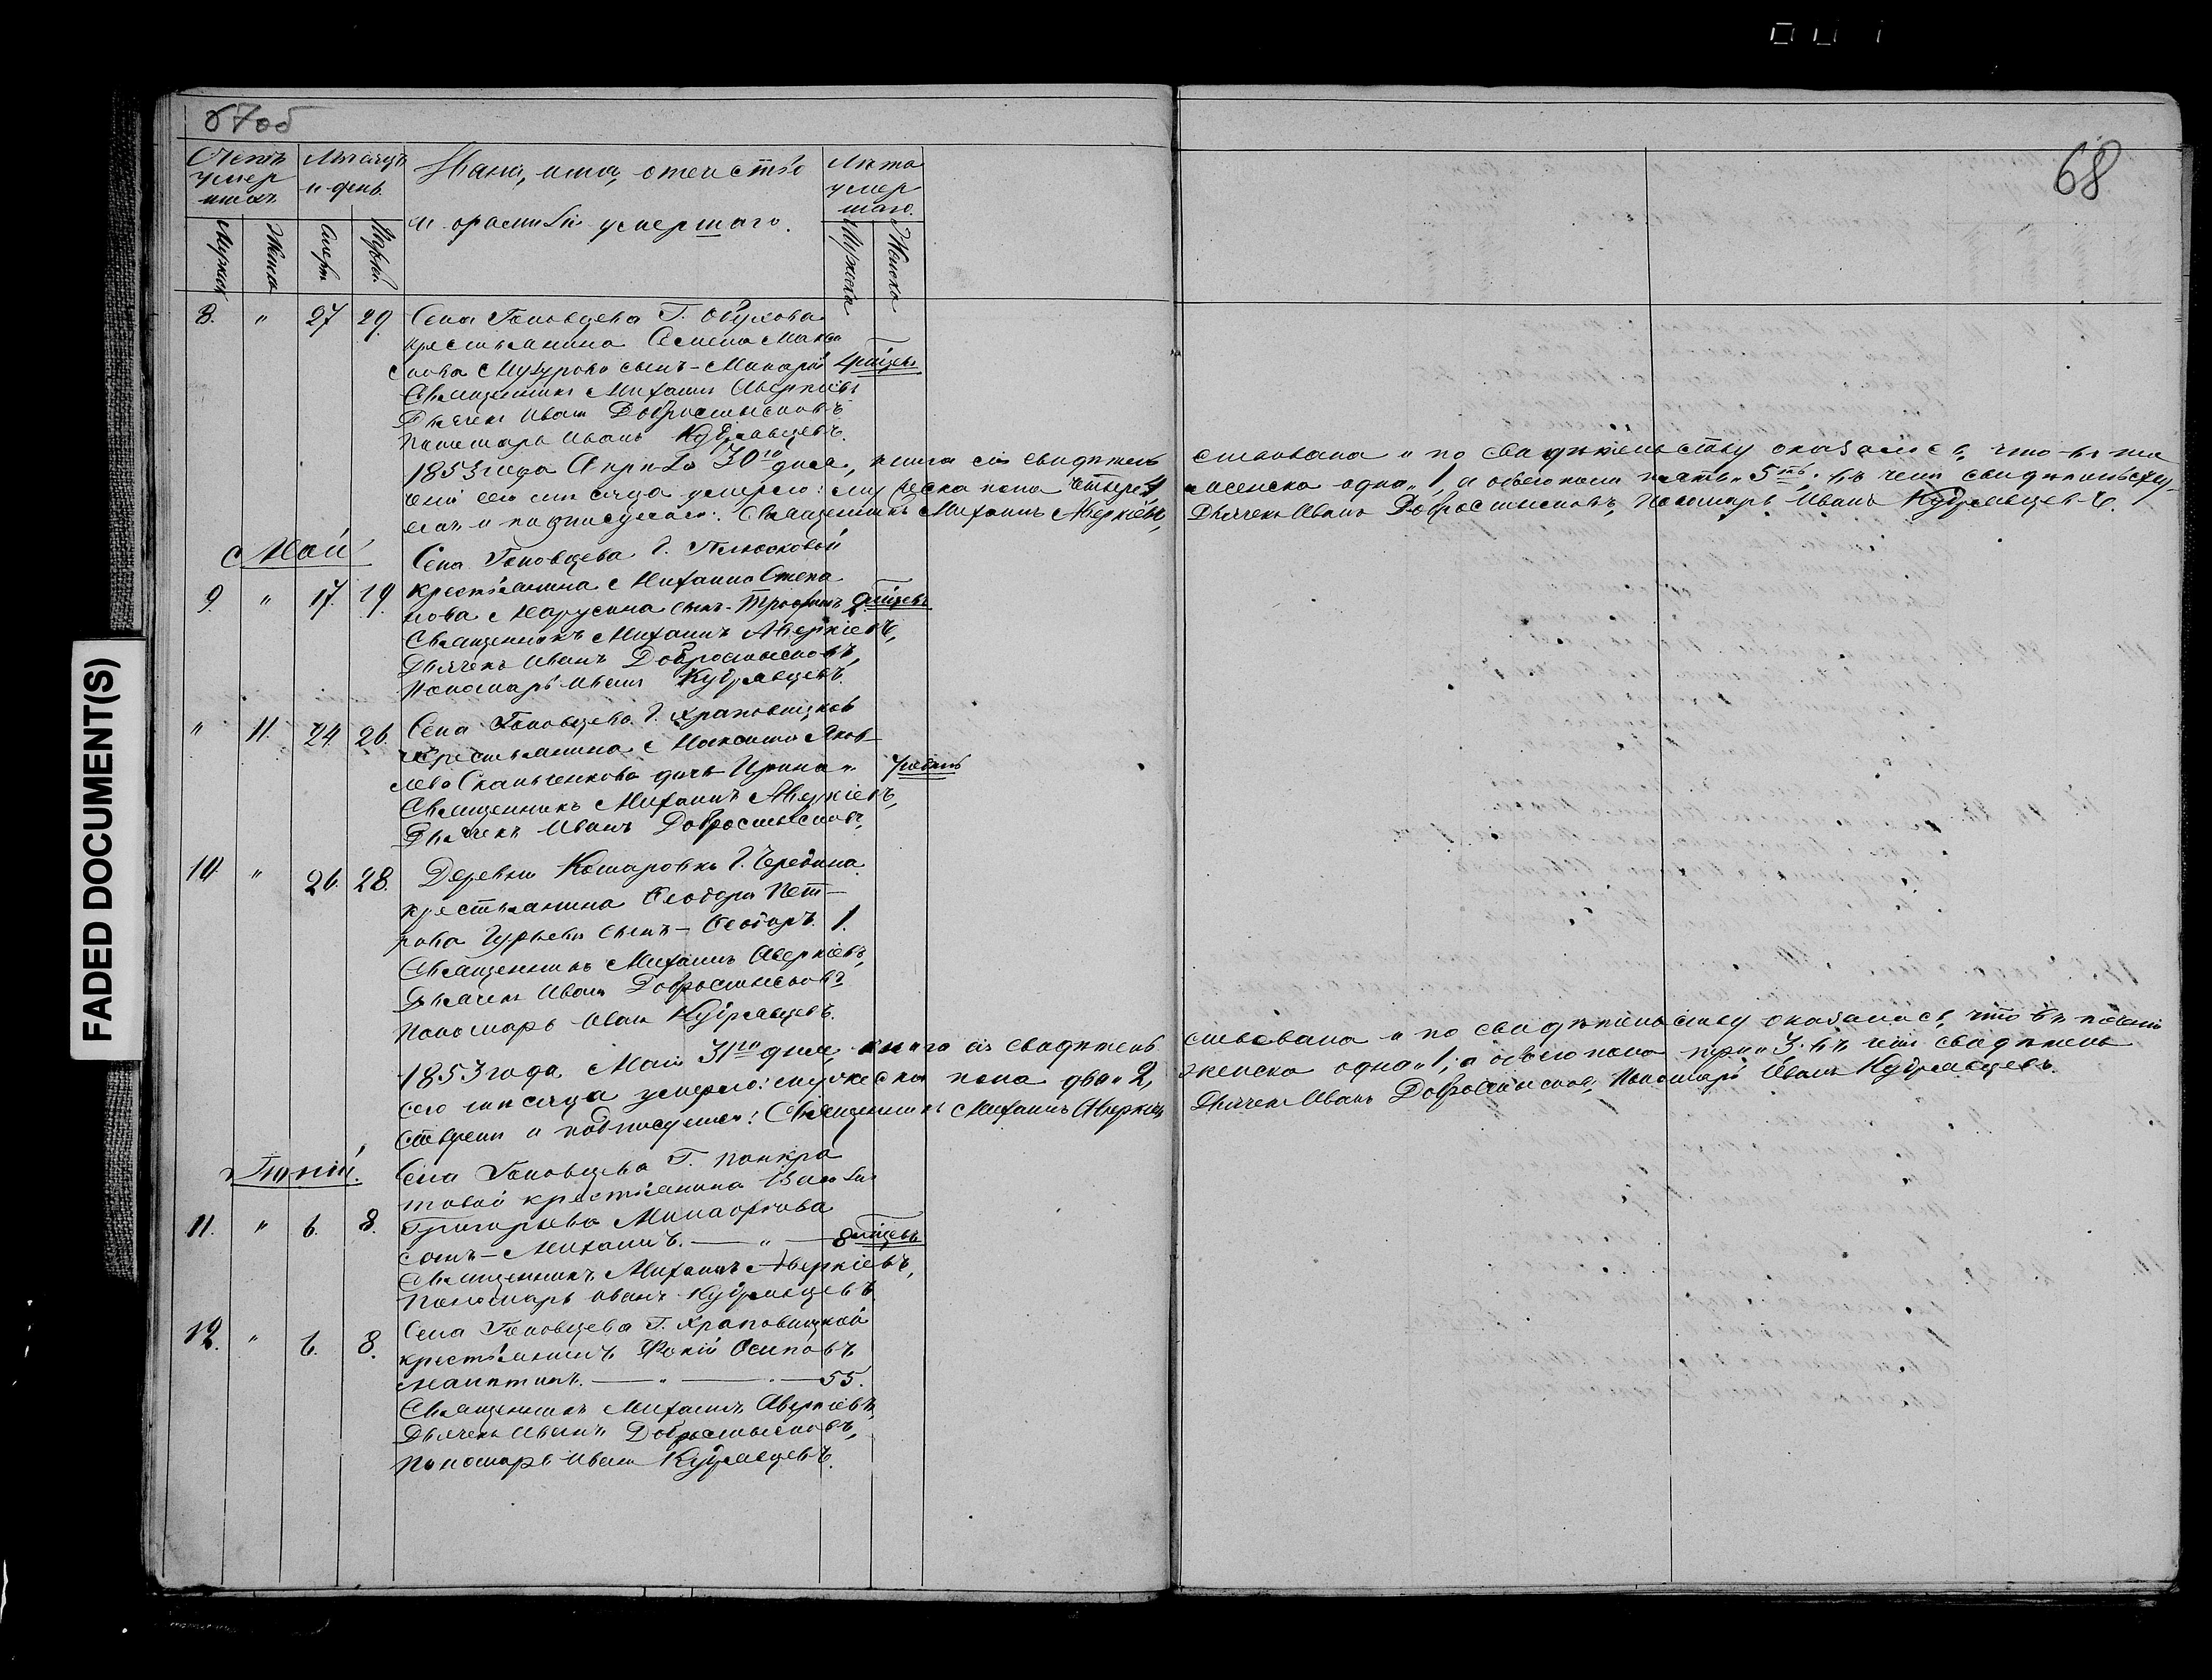 67об
68
Счетъ умершихъ
Мѣсяцъ и день.
Званіе, имя, отечество и фамилія умершаго.
Лѣта умершаго.
Мужска
Женска
Смерт
Погреб
Мужска
Женска
8. " 27 29. Села Поповцева Г. Обухова
крестьянина Семена
сынъ - Макарій 4 мѣсяц
Священникъ Михаилъ Аверкіевъ
Дьячекъ Иванъ Добросмысловъ
Пономарь Иванъ Кудрявцевъ.
1853 года Апрѣля 30го дня, книга сія свидѣтельствована и по свидѣтельству оказалось, что въ те
ченіи сего мѣсяца умерло: мужеска пола четыре 4 женска одна " 1, а обоего пола пять " 5ть. въ чемъ свидѣтельству-
емъ и подписуемся: Священникъ Михаилъ Аверкіевъ, Дьячекъ Иванъ Добросмысловъ, Пономарь Иванъ Кудрявцевъ.
Май
Села Поповцева Г.
9. " 17. 19. крестьянина Михаила Степа
нова Марусина сынъ - Трофимъ 9 мѣсяц
Священникъ Михаилъ Аверкіевъ,
Дьячекъ Иванъ Добросмысловъ,
Пономарь Иванъ Кудрявцевъ.
" 11. 24. 26. Села Поповцева Г. Храповицков
крестьянина Максима Яков-
лева дочь Ирина " 7
Священникъ Михаилъ Аверкіевъ,
Дьячекъ Иванъ Добросмысловъ,
10. " 26. 28. Деревни Комаровки Г. Чередина
крестьянина Ѳеодора Пет-
рова Гурьева сынъ - Ѳеодоръ. 1.
Священникъ Михаилъ Аверкіевъ,
Дьячекъ Иванъ Добросмысловъ
Пономарь Иванъ Кудрявцевъ.
1853 года Маія 31го дня книга сія свидѣтельствована и по свидѣтельству оказалось, что въ теченіи
сего мѣсяца умерло: мужеска пола два " 2, женска одна " 1, а обоего пола три " 3. въ чемъ свидѣтель
ствуемъ и подписуемся: Священникъ Михаилъ Аверкіевъ Дьячекъ Иванъ Добросмысловъ, Пономарь Иванъ Кудрявцевъ.
Іюній.
Села Поповцева Г. Панкра
товой крестьянина Василія
11. " 6. 8. Григорьева
сынъ - Михаилъ. — " — 8 мѣсяцев
Священникъ Михаилъ Аверкіевъ,
Пономарь Иванъ Кудрявцевъ.
12. " 6. 8. Села Поповцева Г. Храповицкой
крестьянинъ Фокій Осиповъ
— " — 55.
Священникъ Михаилъ Аверкіевъ,
Дьячекъ Иванъ Добросмысловъ,
Пономарь Иванъ Кудрявцевъ.
FADED DOCUMENT(S)